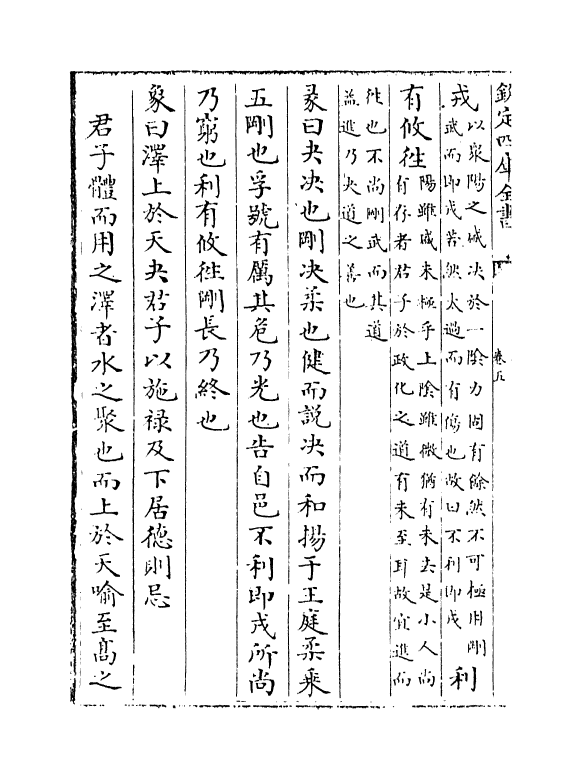 欽定四庫全書
卷五
戎
以衆陽之盛决於一隂力固有餘然不可極用剛
武而即戎若然太過而有傷也故曰不利即戎
利
有攸徃
陽雖盛未極乎上隂雖微猶有未去是小人尚
有存者君子於政化之道有未至耳故宜進而
徃也不尚剛武而其道
益進乃夬道之善也
彖曰夬决也剛决柔也健而説决而和揚于王庭柔乗
五剛也孚號有厲其危乃光也告自邑不利即戎所尚
乃窮也利有攸徃剛長乃終也
象曰澤上於天夬君子以施禄及下居德則忌
君子體而用之澤者水之聚也而上於天喻至髙之